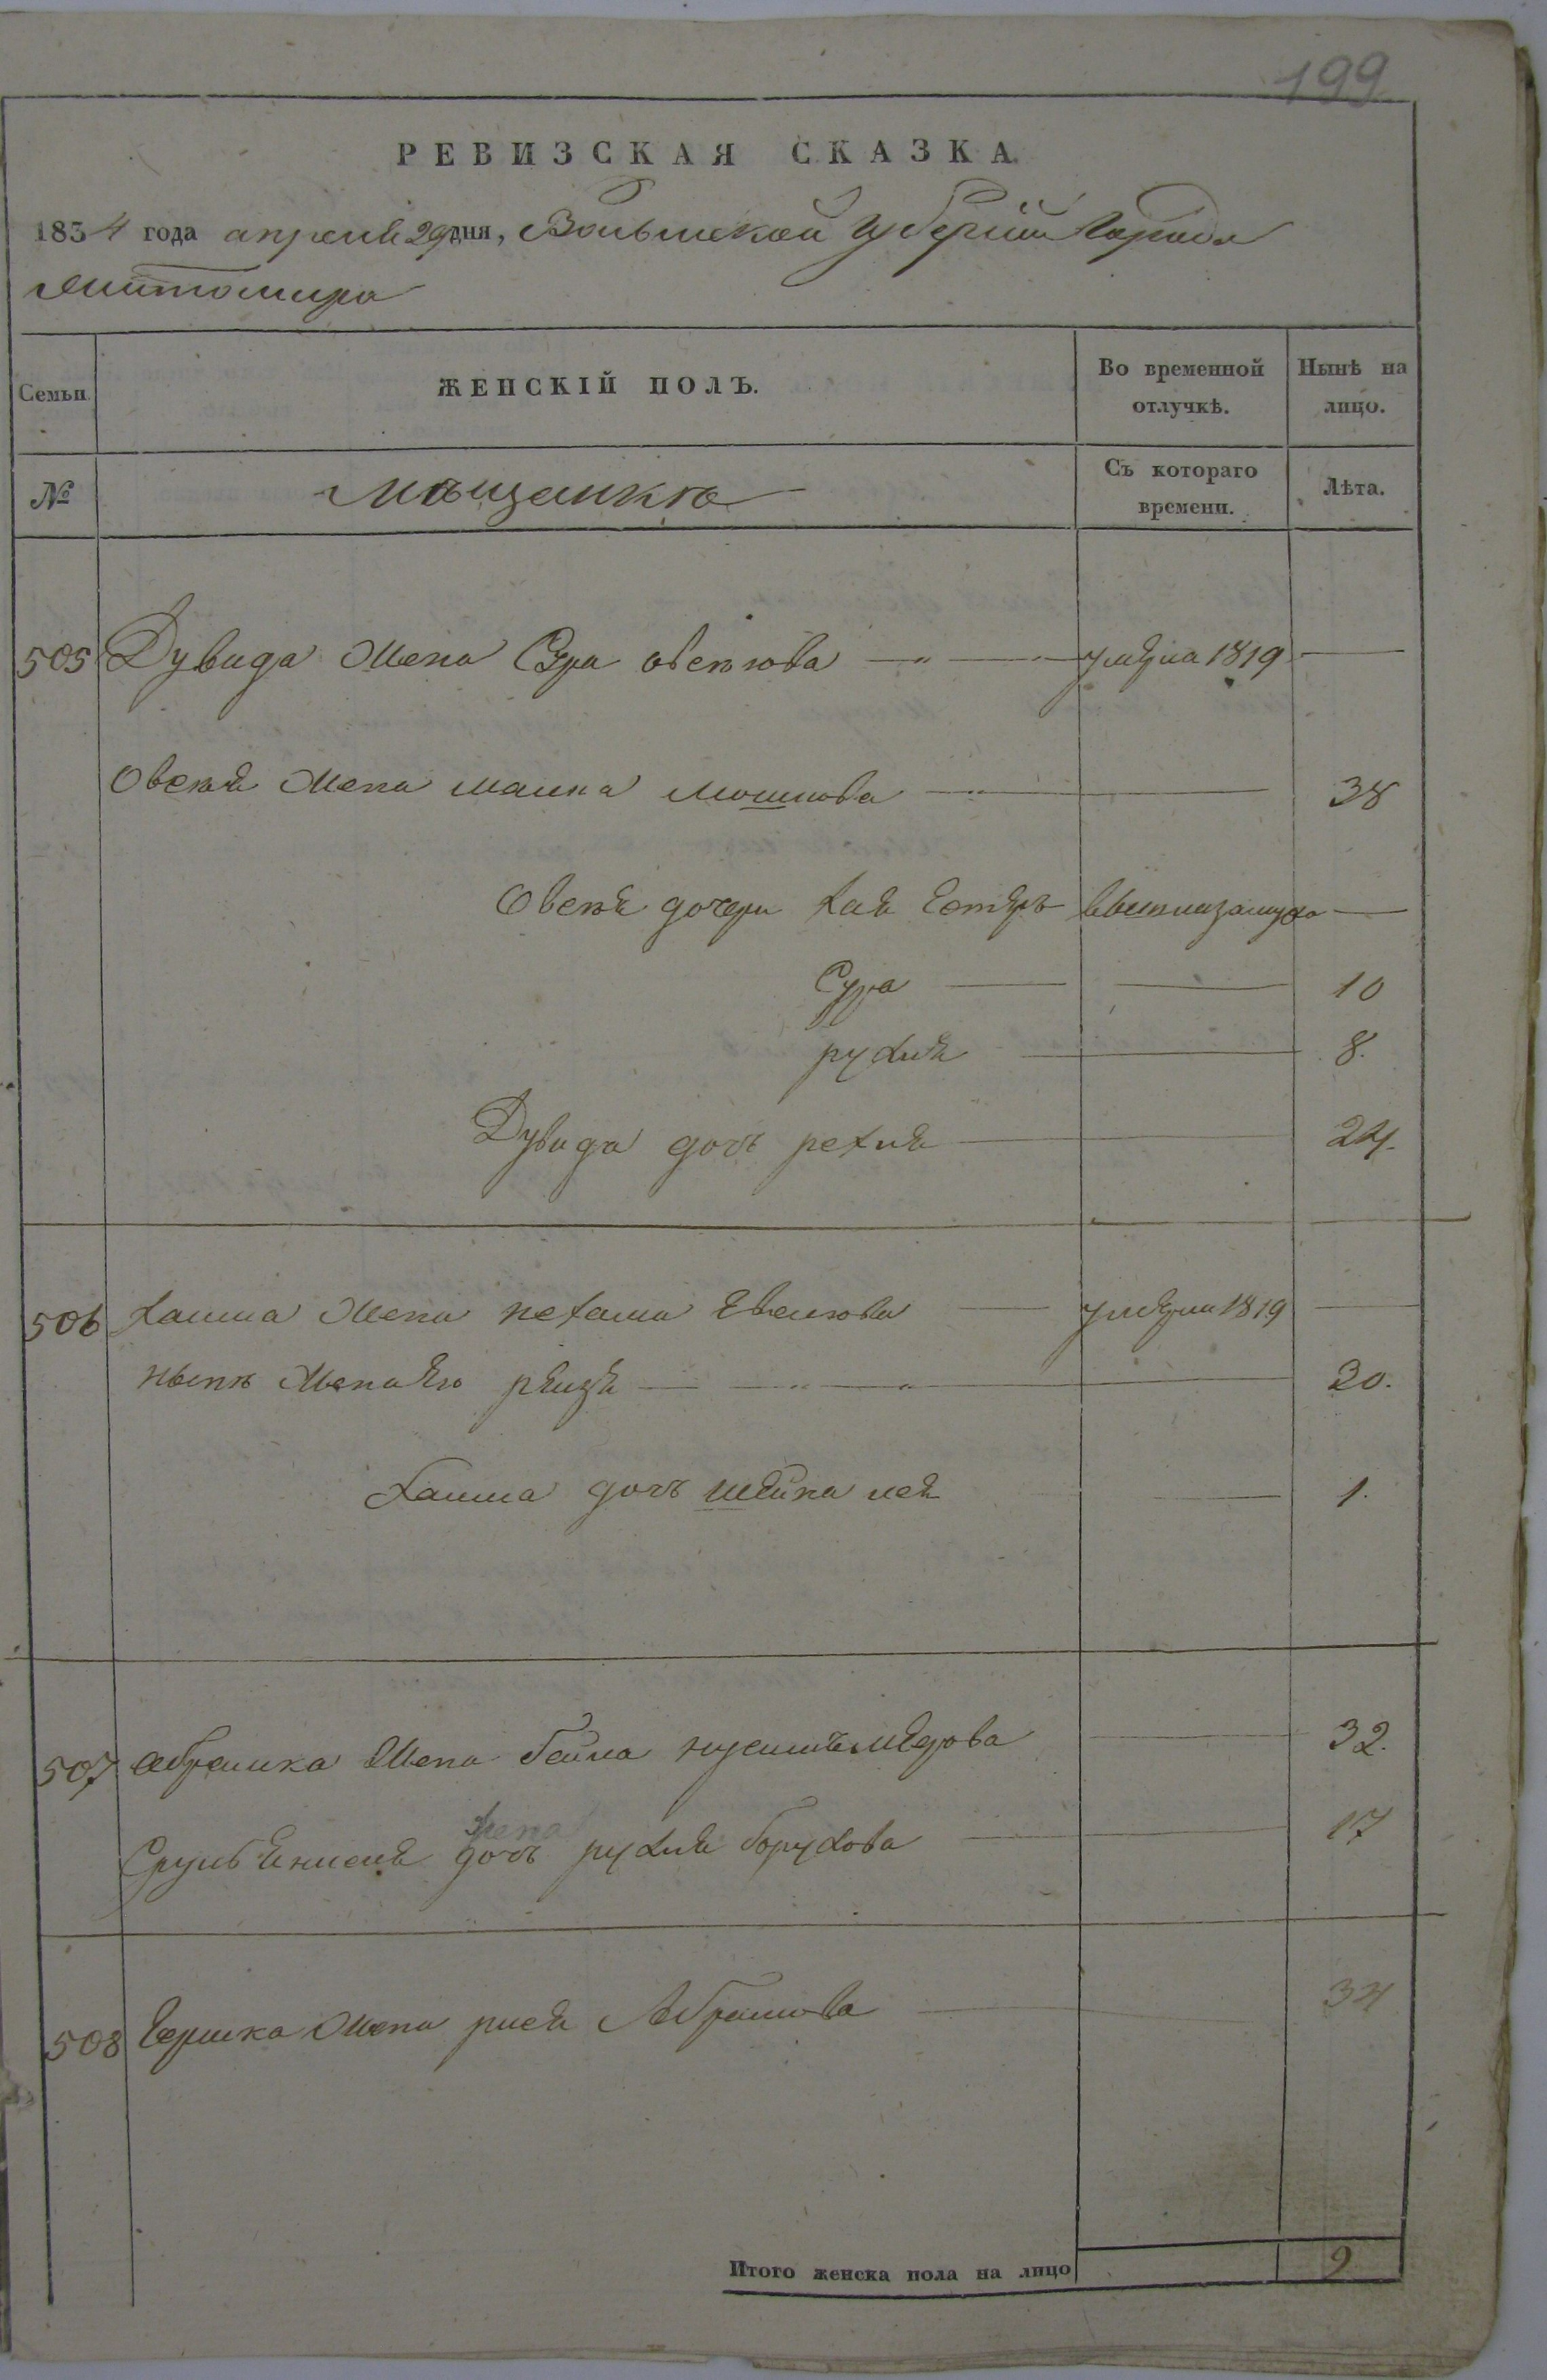 199
РЕВИЗСКАЯ СКАЗКА
1834 года апреля 29 дня, Волынской губернии Города
Житомира
Семьи ЖЕНСКІЙ ПОЛЪ. Во временной отлучкѣ. Нынѣ на лицо.
№ Мѣщанкѣ Съ котораго времени. Лѣта.
505 Дувида жена Сура овсѣюва умерла 1819 —
Овсѣя жена малка мошкова — 38
Овсѣя дочери хая Естеръ взамужа —
Сура — 10
рухля — 8.
Дувида дочь рехля — 24.
506 хаима жена нехама умерла 1819 —
нынѣ жена его рейзя — 30.
хаима дочь шейна лея — 1.
507 абрамка жена бейла — 32.
жена
Сруль дочъ рухля борухова — 17
508 Гершка жена рися Абрамова — 34
Итого женска пола на лицо 9